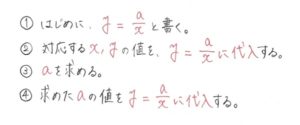 ① はじめに、y = a/x と書く。
② 対応する x, y の値を、y = a/x に代入する。
③ a を求める。
④ 求めた a の値を y = a/x に代入する。